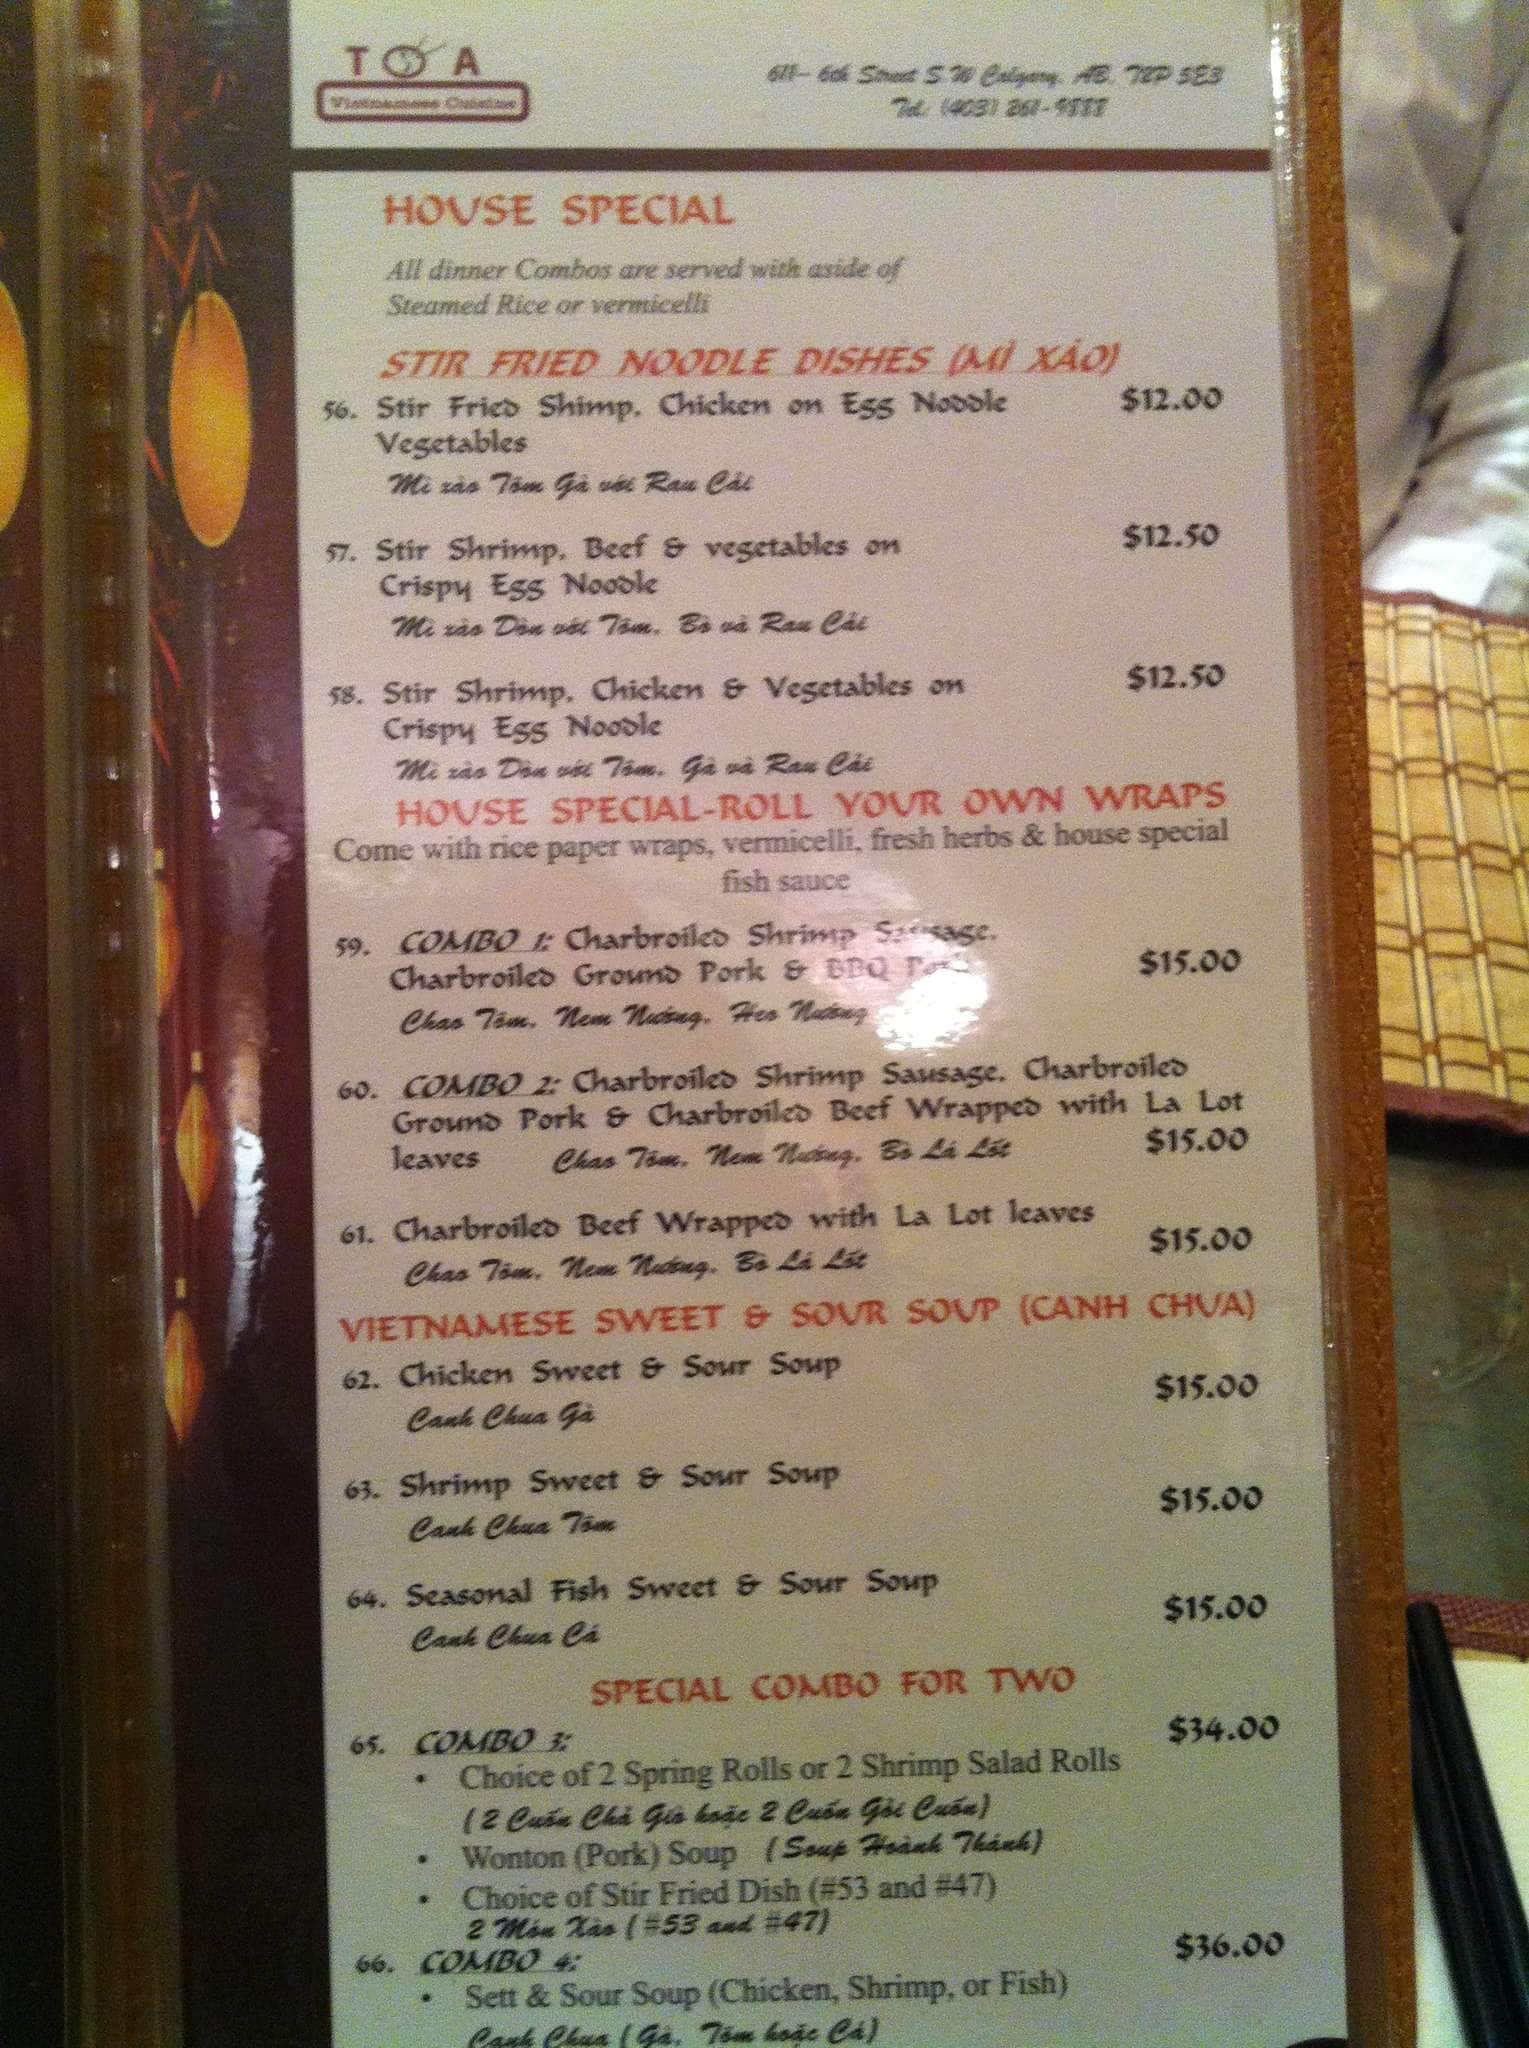 TOA
Vietnamese Cuisine
611- 6th Street S.W Calgary, AB, T2P 5E3
Tel: (403) 261-9888
HOUSE SPECIAL
All dinner Combos are served with aside of
Steamed Rice or vermicelli
STIR FRIED NOODLE DISHES (MÌ XÁO)
56. Stir Fried Shimp, Chicken on Egg Noddle $12.00
Vegetables
Mì xào Tôm Gà với Rau Cải
57. Stir Shrimp, Beef & vegetables on $12.50
Crispy Egg Noodle
Mì xào Dòn với Tôm, Bò và Rau Cải
58. Stir Shrimp, Chicken & Vegetables on $12.50
Crispy Egg Noodle
Mì xào Dòn với Tôm, Gà và Rau Cải
HOUSE SPECIAL-ROLL YOUR OWN WRAPS
Come with rice paper wraps, vermicelli, fresh herbs & house special
fish sauce
59. COMBO 1: Charbroiled Shrimp Sausage,
Charbroiled Ground Pork & BBQ Pork $15.00
Chao Tôm, Nem Nướng, Heo Nướng
60. COMBO 2: Charbroiled Shrimp Sausage, Charbroiled
Ground Pork & Charbroiled Beef Wrapped with La Lot
leaves Chao Tôm, Nem Nướng, Bò Lá Lốt $15.00
61. Charbroiled Beef Wrapped with La Lot leaves $15.00
Chao Tôm, Nem Nướng, Bò Lá Lốt
VIETNAMESE SWEET & SOUR SOUP (CANH CHUA)
62. Chicken Sweet & Sour Soup $15.00
Canh Chua Gà
63. Shrimp Sweet & Sour Soup $15.00
Canh Chua Tôm
64. Seasonal Fish Sweet & Sour Soup $15.00
Canh Chua Cá
SPECIAL COMBO FOR TWO
65. COMBO 3: $34.00
• Choice of 2 Spring Rolls or 2 Shrimp Salad Rolls
(2 Cuốn Chả Giò hoặc 2 Cuốn Gỏi Cuốn)
• Wonton (Pork) Soup (Soup Hoành Thánh)
• Choice of Stir Fried Dish (#53 and #47)
2 Món Xào (#53 and #47)
66. COMBO 4: $36.00
• Sett & Sour Soup (Chicken, Shrimp, or Fish)
Canh Chua (Gà, Tôm hoặc Cá)